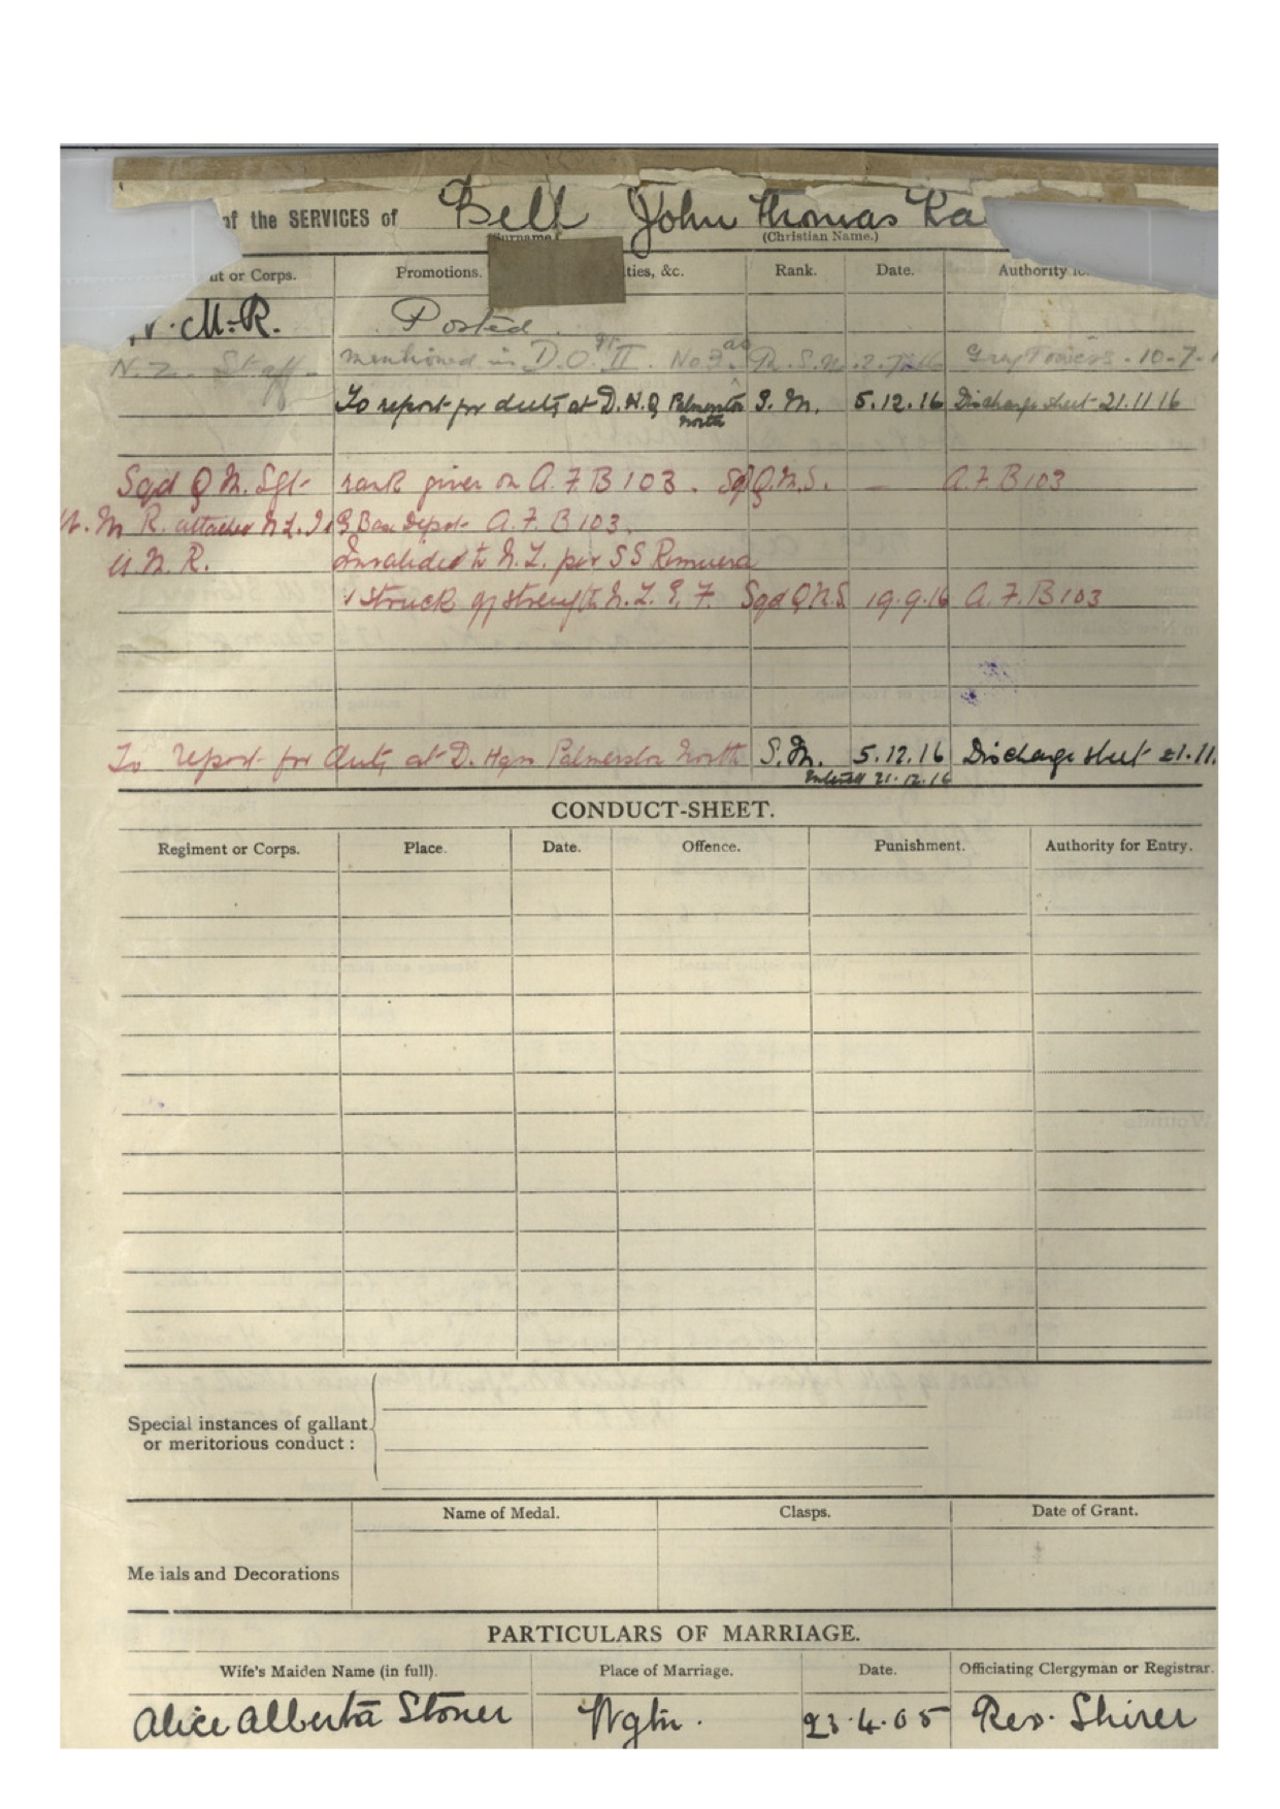 of the SERVICES of Bell John Thomas Ra
(Surname.) (Christian Name.)
nt or Corps. Promotions. ties, &c. Rank. Date. Authority
. M.R. Posted
N.Z. Staff. mentioned in D.O. II. No 3. as 2.7.16 10-7-1
To report for duty at D.H.Q Palmerston North S.M. 5.12.16 Discharge sheet 21.11.16
Sqd Q M. Sgt- rank given on A.F.B 103. Sqd Q.M.S. — A.F.B 103
M R. attached N.Z. Base Depot A.F. B 103.
M. R. Invalided to N.Z. per SS Remuera
& Struck off strength N.Z.E.F. Sqd Q.M.S 19.9.16 A.F.B 103
To report for duty at D. Hqrs Palmerston North S.M. 5.12.16 Discharge sheet 21.11.
Entered 21.12.16
CONDUCT-SHEET.
Regiment or Corps. Place. Date. Offence. Punishment. Authority for Entry.
Special instances of gallant
or meritorious conduct :
Name of Medal. Clasps. Date of Grant.
Me ials and Decorations
PARTICULARS OF MARRIAGE.
Wife's Maiden Name (in full). Place of Marriage. Date. Officiating Clergyman or Registrar.
Alice Alberta Stoner Wgtn. 23.4.05 Rev. Shirer